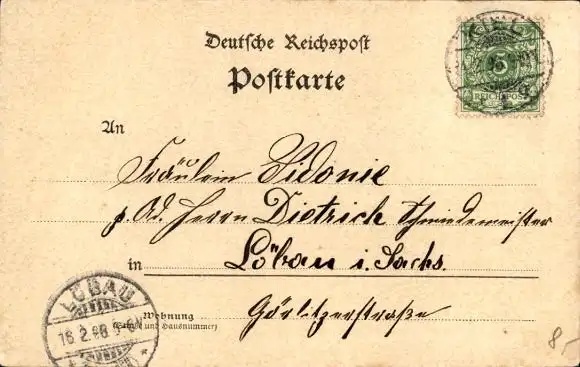 Deutsche Reichspost
Postkarte
REICHSPOST
An
Fräulein Sidonie
p. Ad. Herrn Dietrich Schmiedemeister
in Löbau i. Sachs.
Wohnung
(Straße und Hausnummer)
Görlitzerstraße
LÖBAU
16.2.98
8-